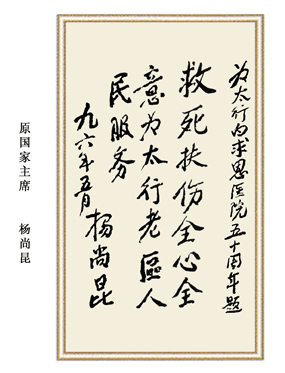 为太行白求恩医院五十周年题
救死扶伤全心全
意为太行老區人
民服务
九六年五月 杨尚昆
原国家主席 杨尚昆